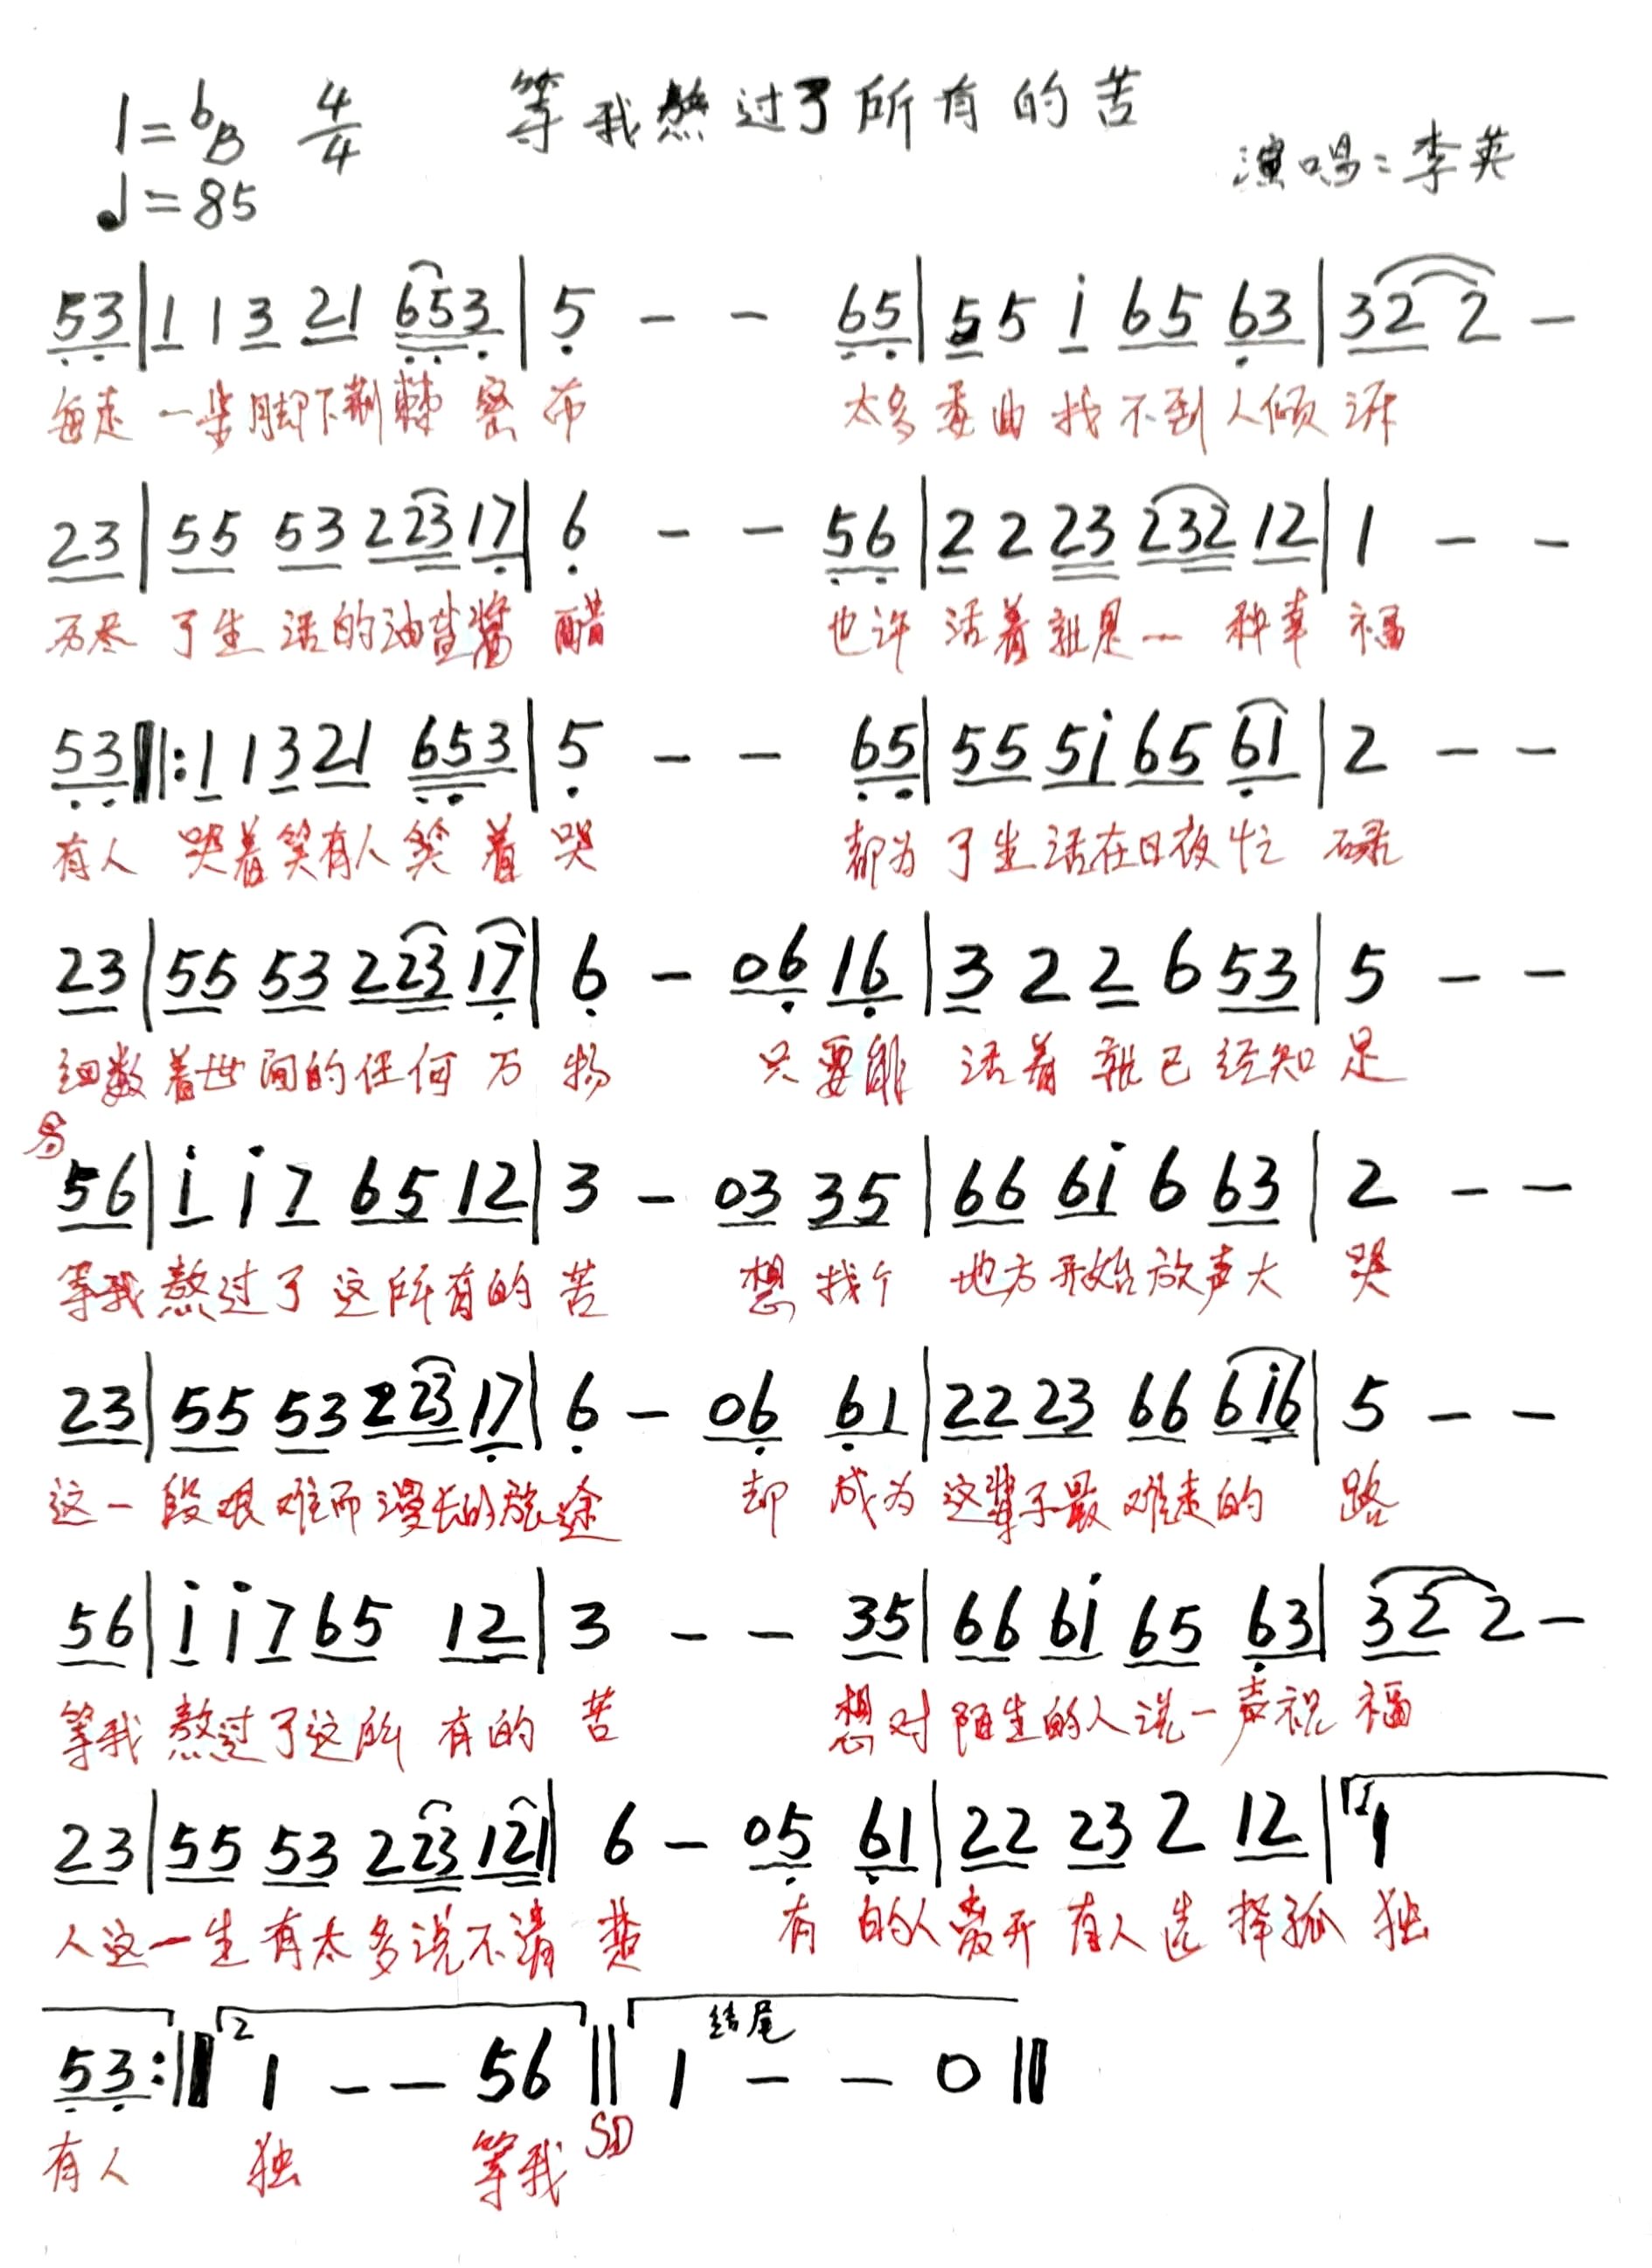 1=♭B 4/4 等我熬过了所有的苦
♩=85 演唱:李英
53|1 1 3 21 653|5 - - 65|5 5 i 65 63|32 2 -
每走 一步脚下荆棘 密 布 太多 委曲 找不到人倾 诉
23|55 53 223 17|6 - - 56|2 2 23 232 12|1 - -
历尽 了生活的油盐酱 醋 也许 活着就是一 种幸 福
53‖:1 1 3 21 653|5 - - 65|55 5i 65 61|2 - -
有人 哭着笑有人 笑 着 哭 都为 了生活在日夜忙 碌
23|55 53 223 17|6 - 06 16|3 2 2 6 53|5 - -
细数着世间的任何 万 物 只要能 活着 就已 经知 足
56|i i 7 65 12|3 - 03 35|66 6i 6 63|2 - -
等我熬过了这所有的 苦 想 找个 地方开始放声大 哭
23|55 53 223 17|6 - 06 61|22 23 66 6i6|5 - -
这一段艰难而漫长的旅途 却 成为 这辈子最难走的 路
56|i i 7 65 12|3 - - 35|66 6i 65 63|32 2 -
等我 熬过了这所 有的 苦 想对陌生的人说一声祝 福
23|55 53 223 121|6 - 05 61|22 23 2 12|1 1
人这一生有太多说不清 楚 有 的人离开 有人选 择孤 独
53:‖2 1 - - 56‖结尾 1 - - 0‖
有人 独 等我 SD